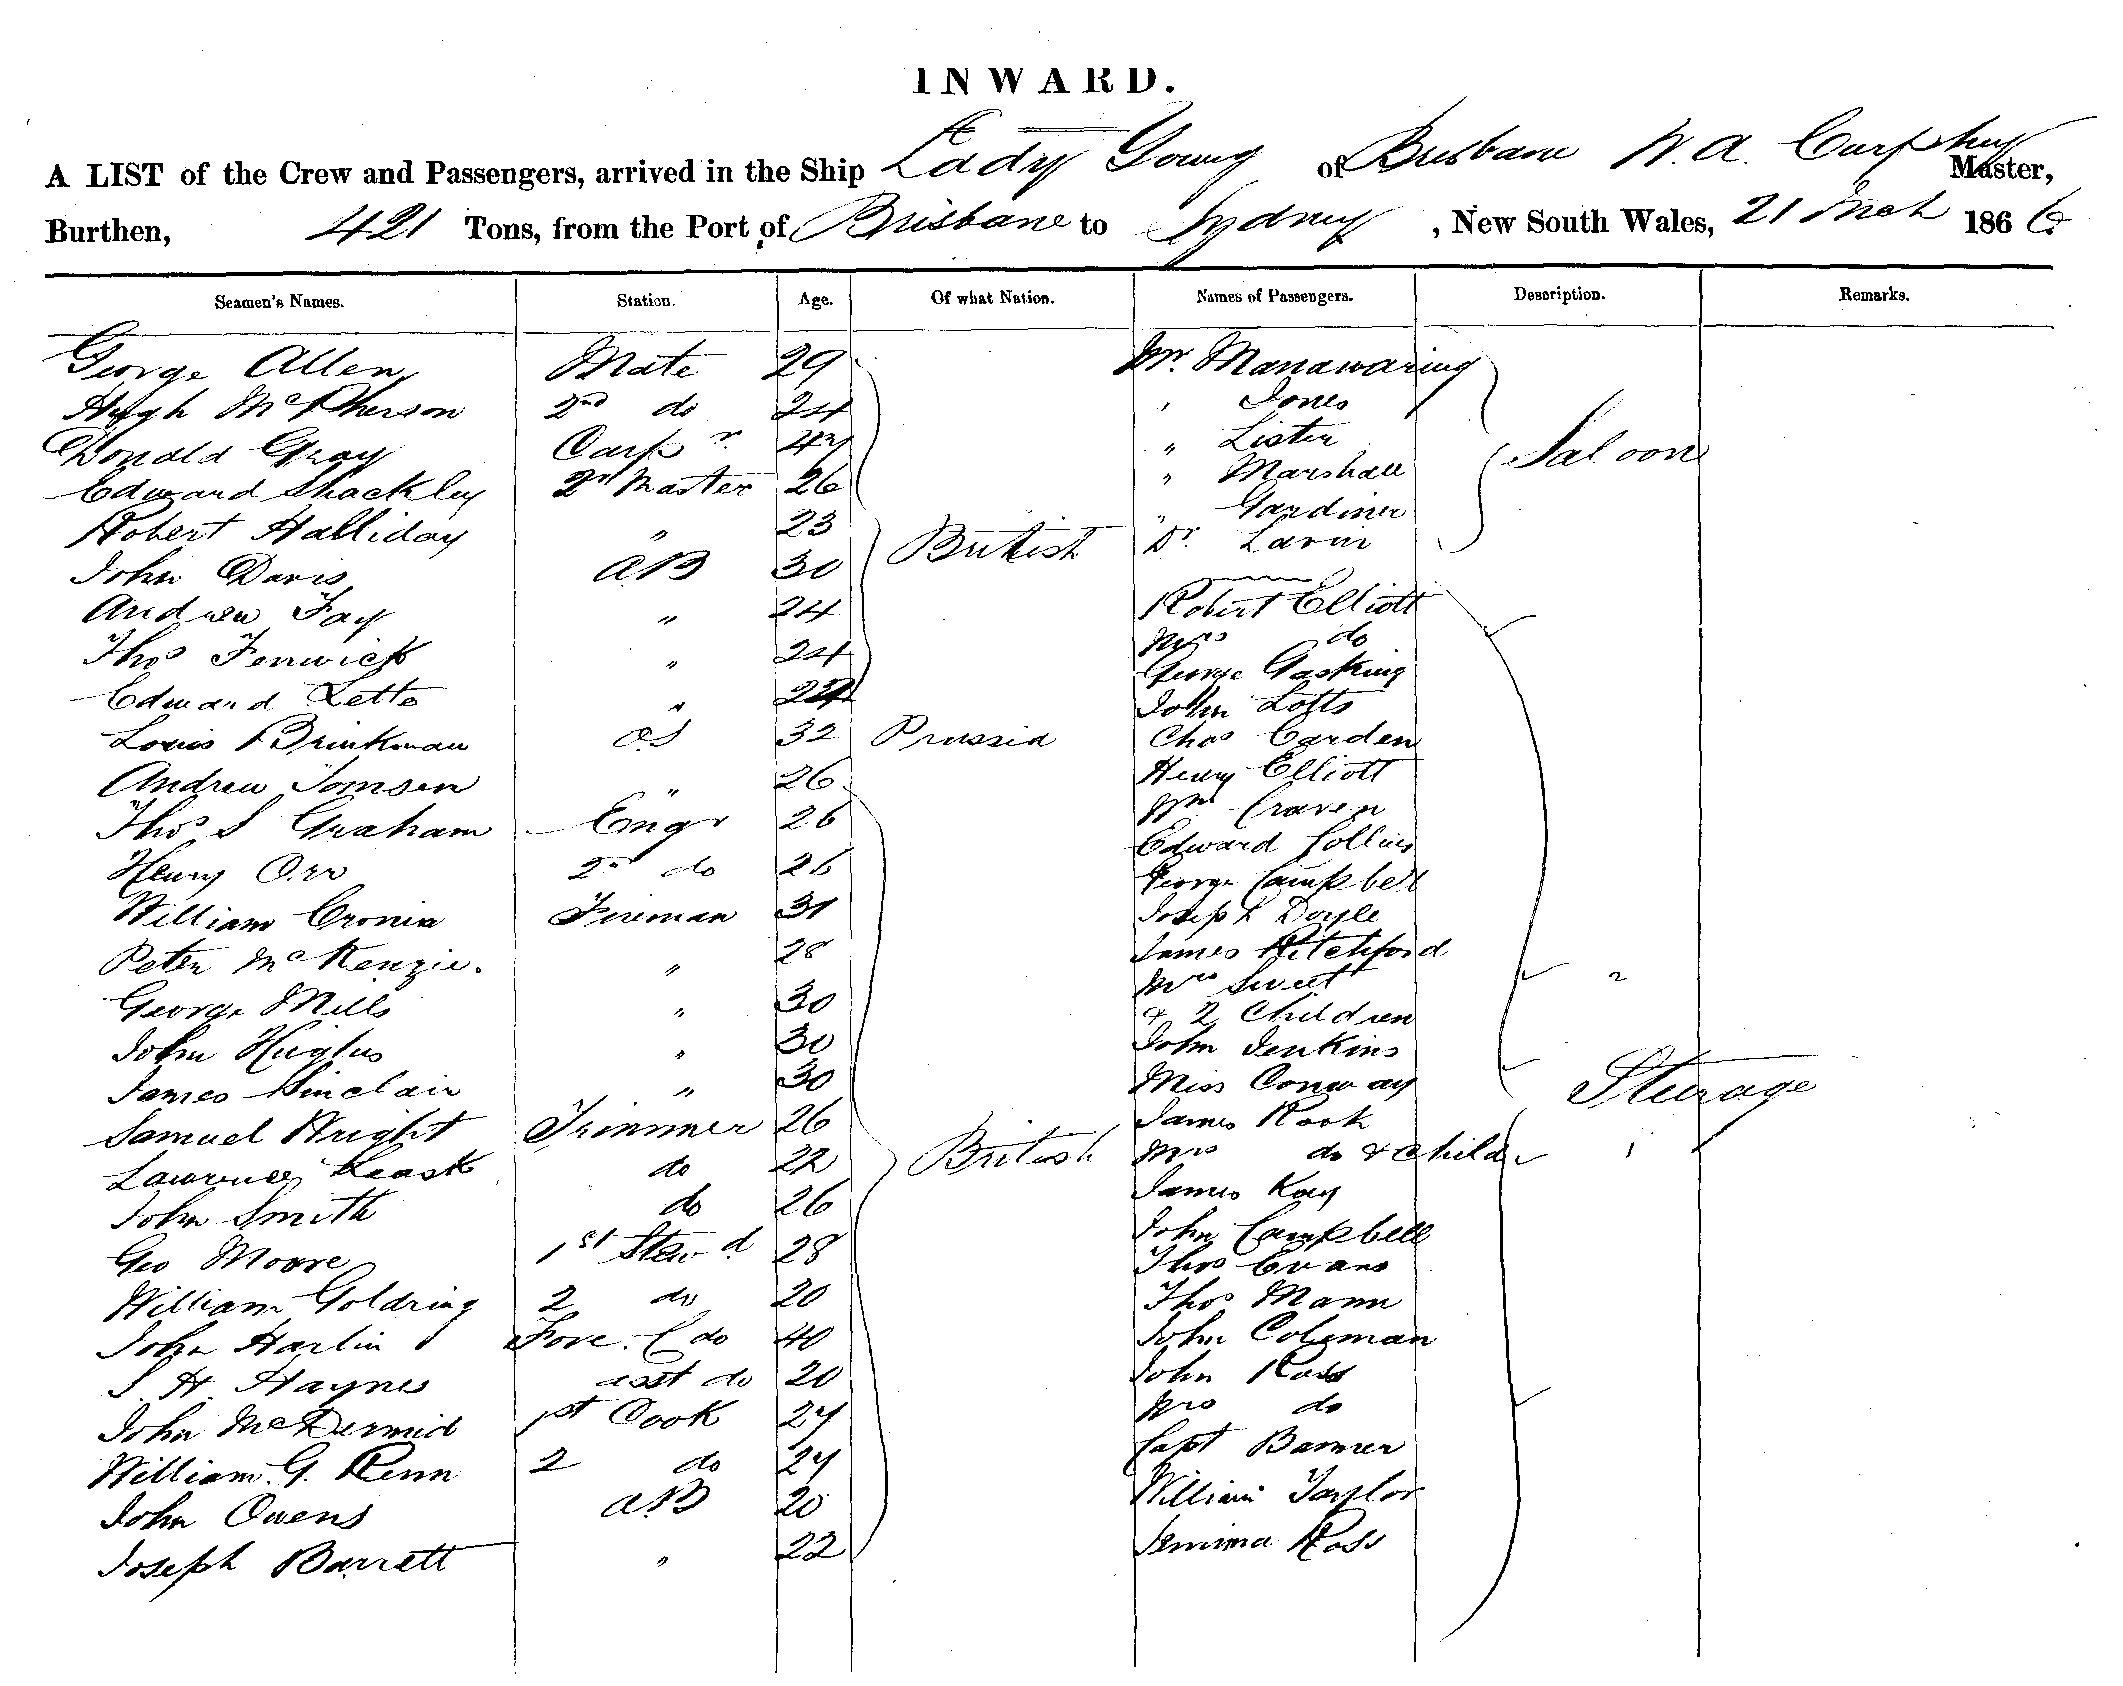 INWARD.
A LIST of the Crew and Passengers, arrived in the Ship Lady Young of Brisbane W. A. Curphey Master,
Burthen, 421 Tons, from the Port of Brisbane to Sydney, New South Wales, 21 Mch 1866
Seamen's Names. Station. Age. Of what Nation. Names of Passengers. Description. Remarks.
George Allen Mate 29 Mr. Manawaring
Hugh McPherson 2nd do 24 " Jones
Donald Gray Carpr 47 " Lister Saloon
Edward Shackley 2r Master 26 " Marshall
Robert Halliday " 23 " Gardiner
John Davis AB 30 British Dr. Lavin
Andrew Fay " 24 Robert Elliott
Thos Fenwick " 24 Mrs do
Edward Letts " George Gasking
Louis Brinkman OS 32 Prussia John Lotts
Andrew Tomsen " 26 Chas Carden
Thos S Graham Engr 26 Henry Elliott
Henry Orr 2nd do 26 Wm Craven
William Cronin Fireman 31 Edward Collins
Peter McKenzie. " 28 George Campbell
George Mills " 30 Joseph Doyle
John Hughes " 30 James Pitchford
James Sinclair " 30 Mrs Sweet "
Samuel Wright Trimmer 26 & 2 Children
Lawrence Leask do 22 British John Jenkins
John Smith do 26 Miss Conway Steerage
Geo Moore 1st Stewd 28 James Rook
William Goldring 2 do 20 Mrs do & Child
John Harlin Fore. C do 40 James Kay
S. H. Haynes asst do 20 John Campbell
John McDermid 1st Cook 27 Thos Evans
William G. Renn 2 do 27 Thos Mann
John Owens AB 20 John Coleman
Joseph Barrett " 22 John Ross
Mrs do
Capt Banner
William Taylor
Jemima Ross